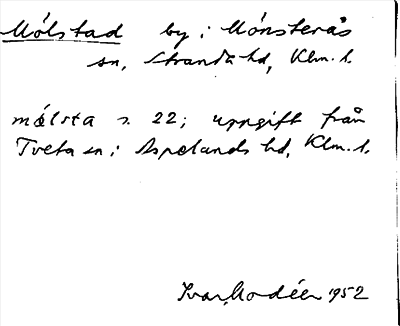 Mólstad by i Mönsterås
sn, Stranda hd, Klm. l.
målsta s. 22; uppgift från
Tveta sn i Aspelands hd, Klm. l.
Ivar Modéer 1952